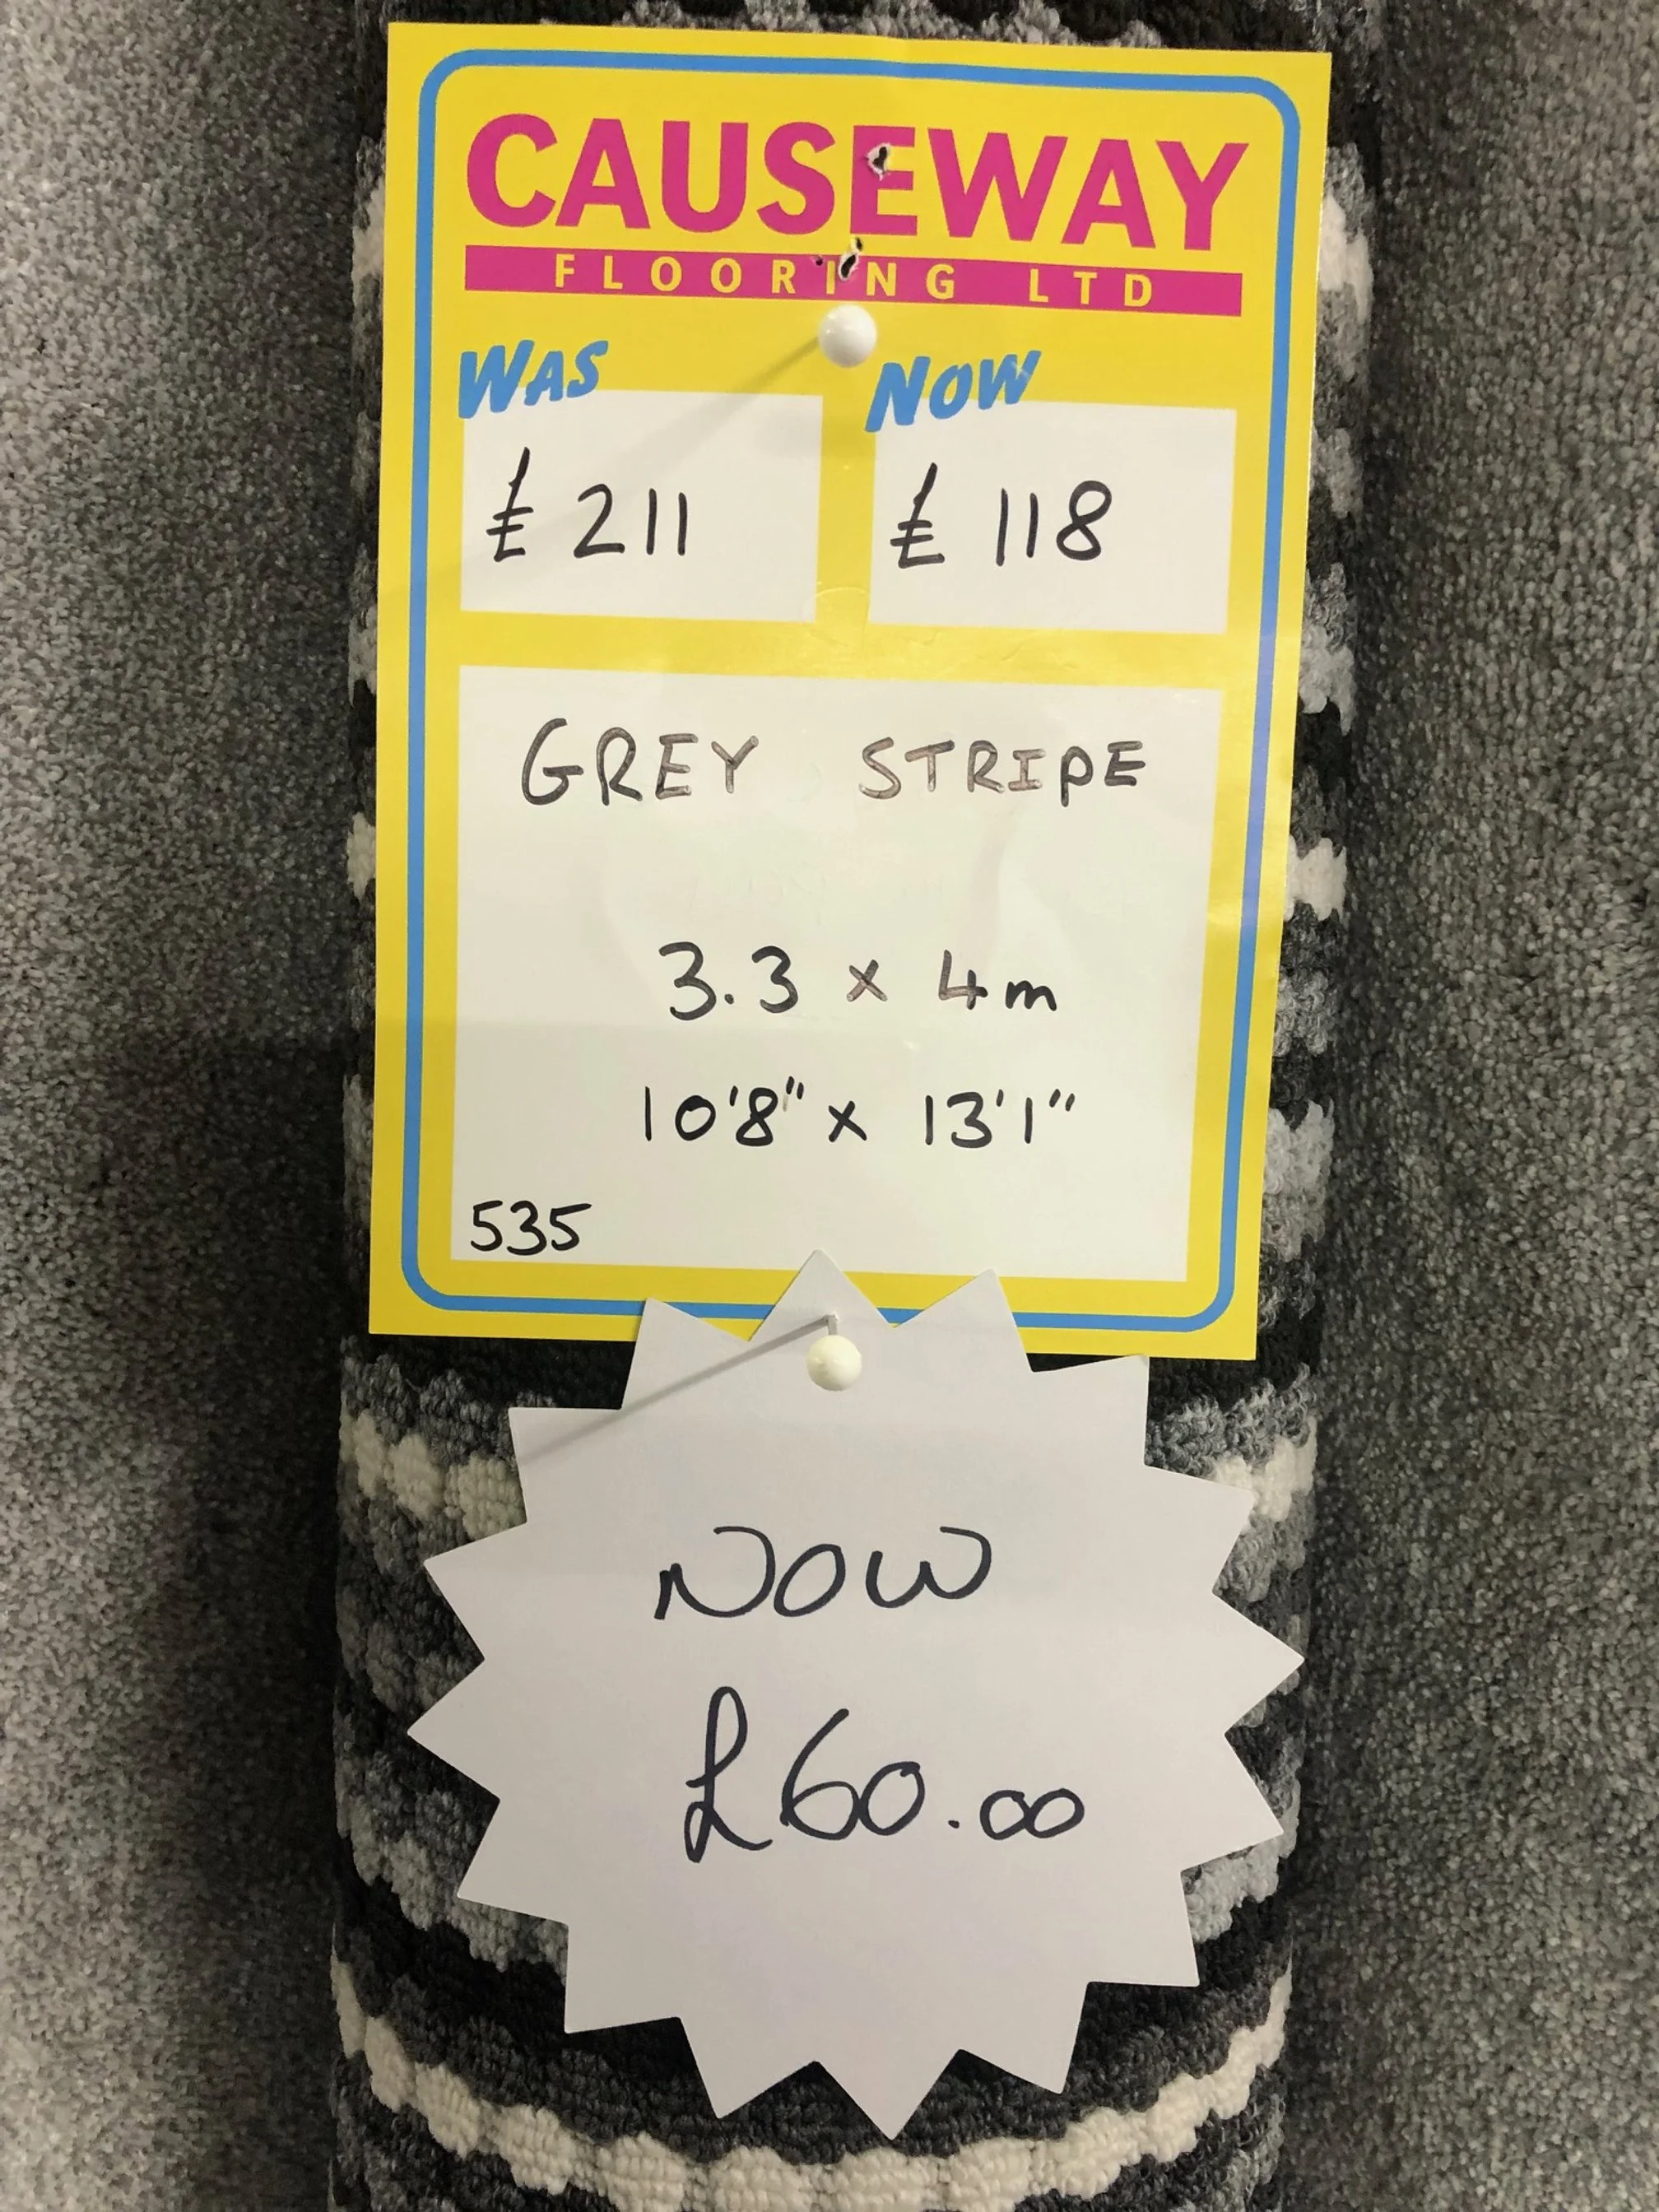 CAUSEWAY
FLOORING LTD
WAS NOW
£ 211 £ 118
GREY STRIPE
3.3 x 4m
10'8" x 13'1"
535
NOW
£60.00